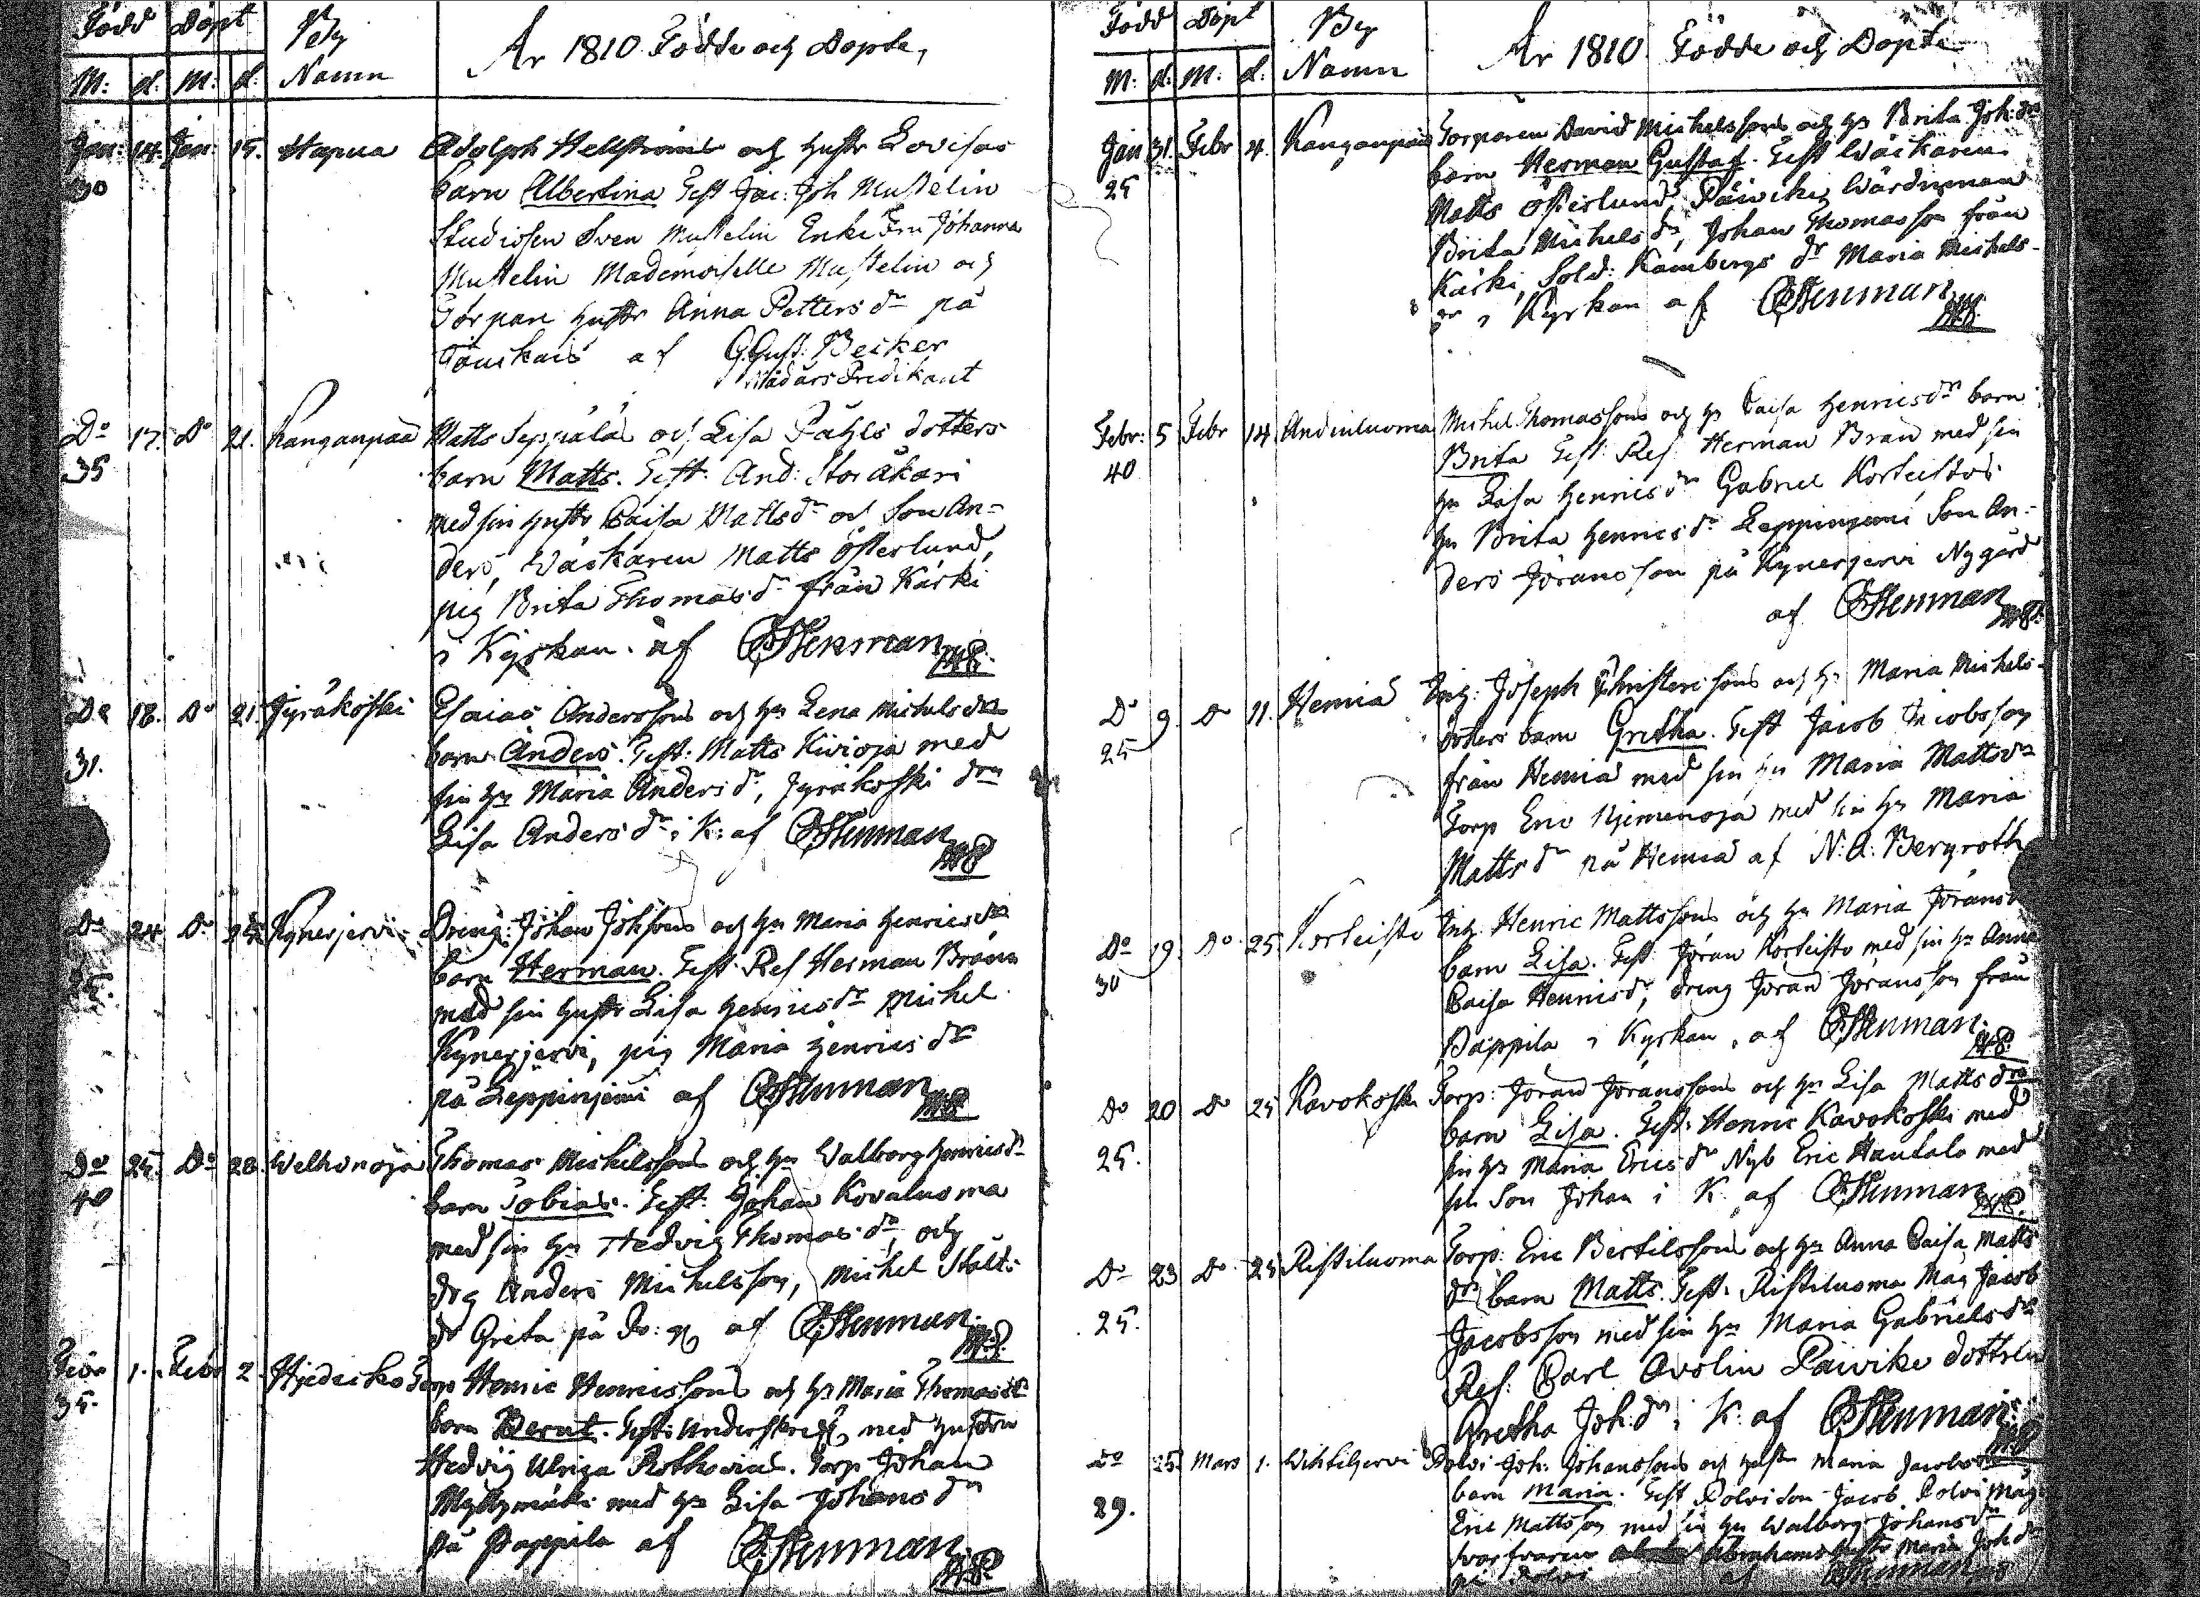 Född Döpt By År 1810 Födde och Döpte,
M: d. M: d: Namn
Jan: 14. Jan: 15. Hapua Adolph Hellströms och hustr Lovisas
30 barn Albertina Test Jac: Joh Mustelin
Studiosen Sven Mustelin Enke Fru Johanna
Mustelin Mademoiselle Mustelin och
Torpare hustr Anna Petters dr på
af G. Gust. Becker
Nådårs Predikant
Do 17. Do 21. Kanganpää Matts Seppäläs och Lisa Påhls dotters
35 barn Matts. Test. And: Storåkari
med sin hustr Caisa Matts dr och Son An=
ders, Wäskaren Matts Österlund,
pig Brita Thomas dr från Karki
i Kyrkan. af Stenman
Do 18. Do 21. Jyräkoski Esaias Anderssons och hu Lena Michels drs
31. barn Anders. Test. Matts Kivioja med
sin hu Maria Anders dr, Jyräkoski drn
Lisa Anders dr i K: af Stenman
Do 24 Do Kynerjervi Dreng: Johan Johssons och hu Maria Henrics drs
25. barn Herman. Test. Ref Herman Brann
med sin hustr Lisa Henrics dr Michel
Kynerjervi, pig Maria Henrics dr
på Leppinjemi af Stenman
Do 25. Do 28. Welhonoja Thomas Michelssons och hu Walborg Henrics dr
40 barn Tobias. Test. Johan Kovaluoma
med sin hu Hedvig Thomas dr, och
drg Anders Michelsson, Michel Stålts
dr Greta på af Stenman
Febr 1. Febr 2. Torp Henric Henricssons och hu Maria Thomas dr
35. barn Bernt. Test: Underskref. med hustrun
Hedvig Ulrica Rothovia. Torp Johan
Myllymäki med hu Lisa Johans dr
på Pappila af Stenman
Född Döpt By År 1810. Födde och Döpte
M: d. M: d: Namn
Jan 31. Febr 4. Kanganpää Torparen David Michelssons och hu Brita Joh: dr
25 barn Herman Gustaf. Test Wäskaren
Matts Österlund, Päivike Wärdinnan
Brita Michels dr, Johan Thomasson från
Karki, Sold: Kambergs dr Maria Michels-
dr i Kyrkan af Stenman
Febr: 5 Febr 14 Michel Thomassons och hu Caisa Henrics drs barn
40 Brita Test. Ref Herman Bran med sin
hu Lisa Henrics dr Gabriel Korteistos
hu Brita Henrics dr Leppinjemi Son An=
ders Joransson på Kynerjervi Nygård
af Stenman
Do 9. Do 11. Hemiä Inh: Joseph Christerssons och hu Maria Michels-
25 dotters barn Gretha. Test Jacob Jacobsson
från Hemiä med sin hu Maria Matts dr
Torp Eric Njemenoja med sin hu Maria
Matts dr på Hemiä af N: A: Bergroth
Do 19. Do 25 Korteisto Inh. Henric Mattssons och hu Maria Jorans dr
30 barn Lisa. Test Joran Korteisto med sin hu Anna
Caisa Henrics dr, dreng Joran Joransson från
Pappila i Kyrkan. af Stenman
Do 20 Do 25 Kavokoski Torp: Joran Joranssons och hu Lisa Matts drs
25. barn Lisa. Test. Henric Kavokoski med
sin hu Maria Erics dr Nyb Eric Hautala med
sin Son Johan i K. af Stenman
Do 23 Do 25 Ristiluoma Torp: Eric Bertilssons och hu Anna Caisa Matts
25. dr barn Matts. Test. Ristiluoma Måg Jacob
Jacobsson med sin hu Maria Gabriels dr
Ref. Carl Avolin Päivike dottren
Gretha Joh: dr i K. af Stenman
Do 25. Mars 1. Polvi Joh: Johanssons och hustr Maria Jacobs dr
29. barn Maria. Test Polvi Son Jacob Polvi Måg
Eric Mattsson med sin hu Walborg Johans dr
Svarfvaren Abrahams hustr Maria Joh dr
på Polvi af Stenman